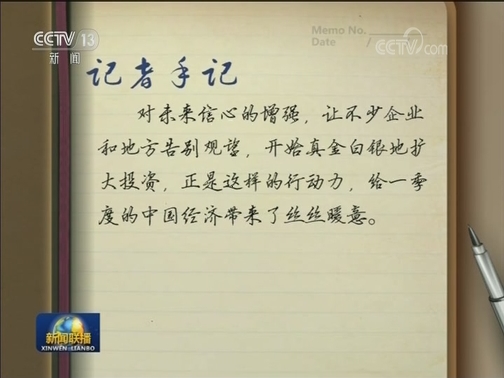 CCTV 13
新闻
Memo No.
Date /
CCTV.com
记者手记
对未来信心的增强，让不少企业
和地方告别观望，开始真金白银地扩
大投资，正是这样的行动力，给一季
度的中国经济带来了丝丝暖意。
新闻联播
XINWEN-LIANBO